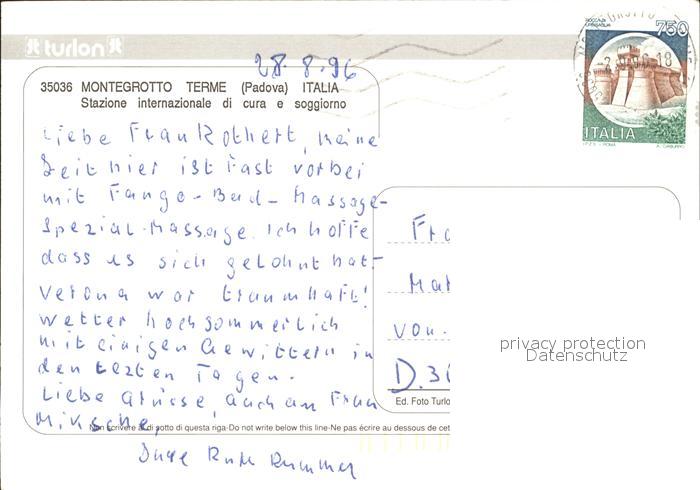 turlon
28.8.96
750
ROCCA DI URBISAGLIA
ITALIA
I.P.Z.S. - ROMA
35036 MONTEGROTTO TERME (Padova) ITALIA
Stazione internazionale di cura e soggiorno
Liebe Frau Rothert, meine
Zeit hier ist fast vorbei
mit Fango-Bad-Massage-
Spezial-Massage. Ich hoffe
dass es sich gelohnt hat.
Verona war traumhaft!
Wetter hochsommerlich
mit einigen Gewittern in
den letzten Tagen.
Liebe Grüsse, auch an Frau
Mirsche,
Ihre Ruth
Fra
Mar
von
D.30
privacy protection
Datenschutz
Ed. Foto Turlo
Non scrivere al di sotto di questa riga-Do not write below this line-Ne pas écrire au dessous de cet